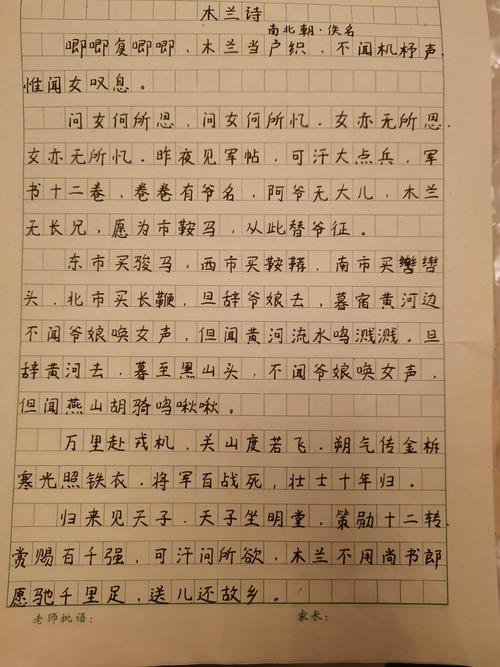 木兰诗
南北朝·佚名
唧唧复唧唧，木兰当户织，不闻机杼声，
惟闻女叹息。
问女何所思，问女何所忆。女亦无所思，
女亦无所忆。昨夜见军帖，可汗大点兵，军
书十二卷，卷卷有爷名，阿爷无大儿，木兰
无长兄，愿为市鞍马，从此替爷征。
东市买骏马，西市买鞍鞯，南市买辔
头，北市买长鞭，旦辞爷娘去，暮宿黄河边
不闻爷娘唤女声，但闻黄河流水鸣溅溅。旦
辞黄河去，暮至黑山头，不闻爷娘唤女声，
但闻燕山胡骑鸣啾啾。
万里赴戎机，关山度若飞。朔气传金柝
寒光照铁衣。将军百战死，壮士十年归。
归来见天子，天子坐明堂，策勋十二转，
赏赐百千强，可汗问所欲，木兰不用尚书郎
愿驰千里足，送儿还故乡。
老师批语：	家长：